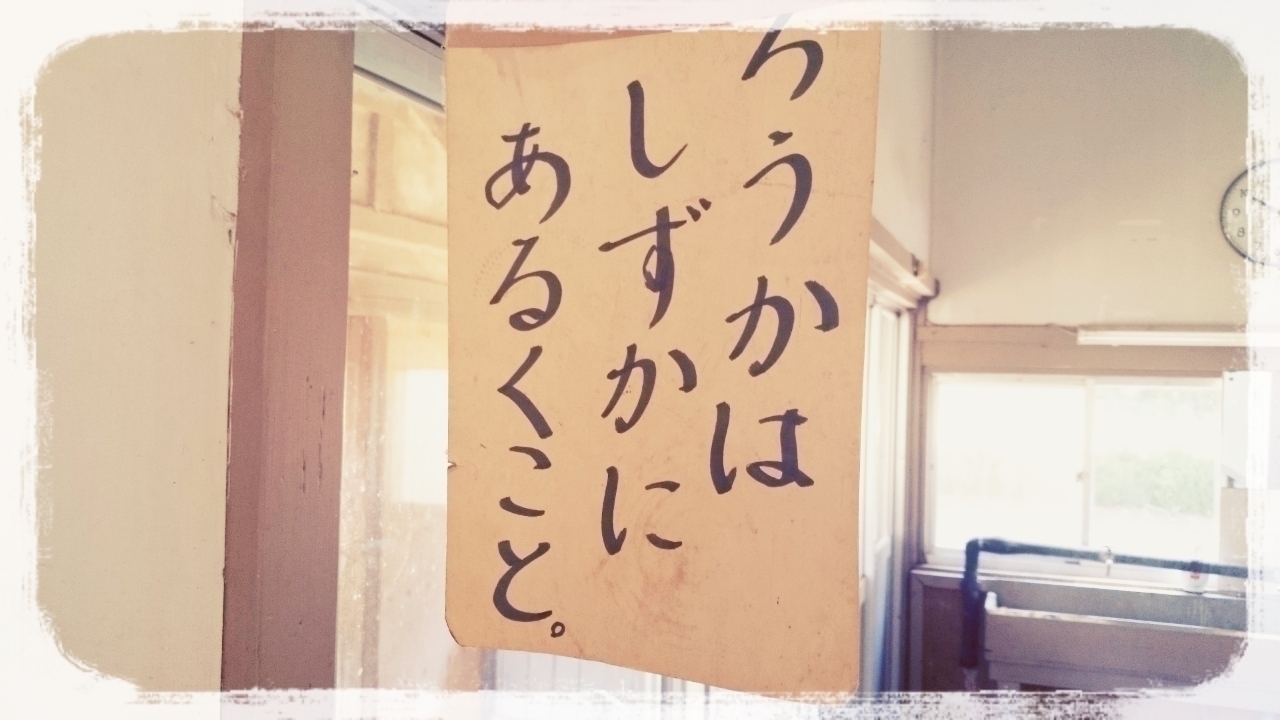 ろうかは
しずかに
あるくこと。